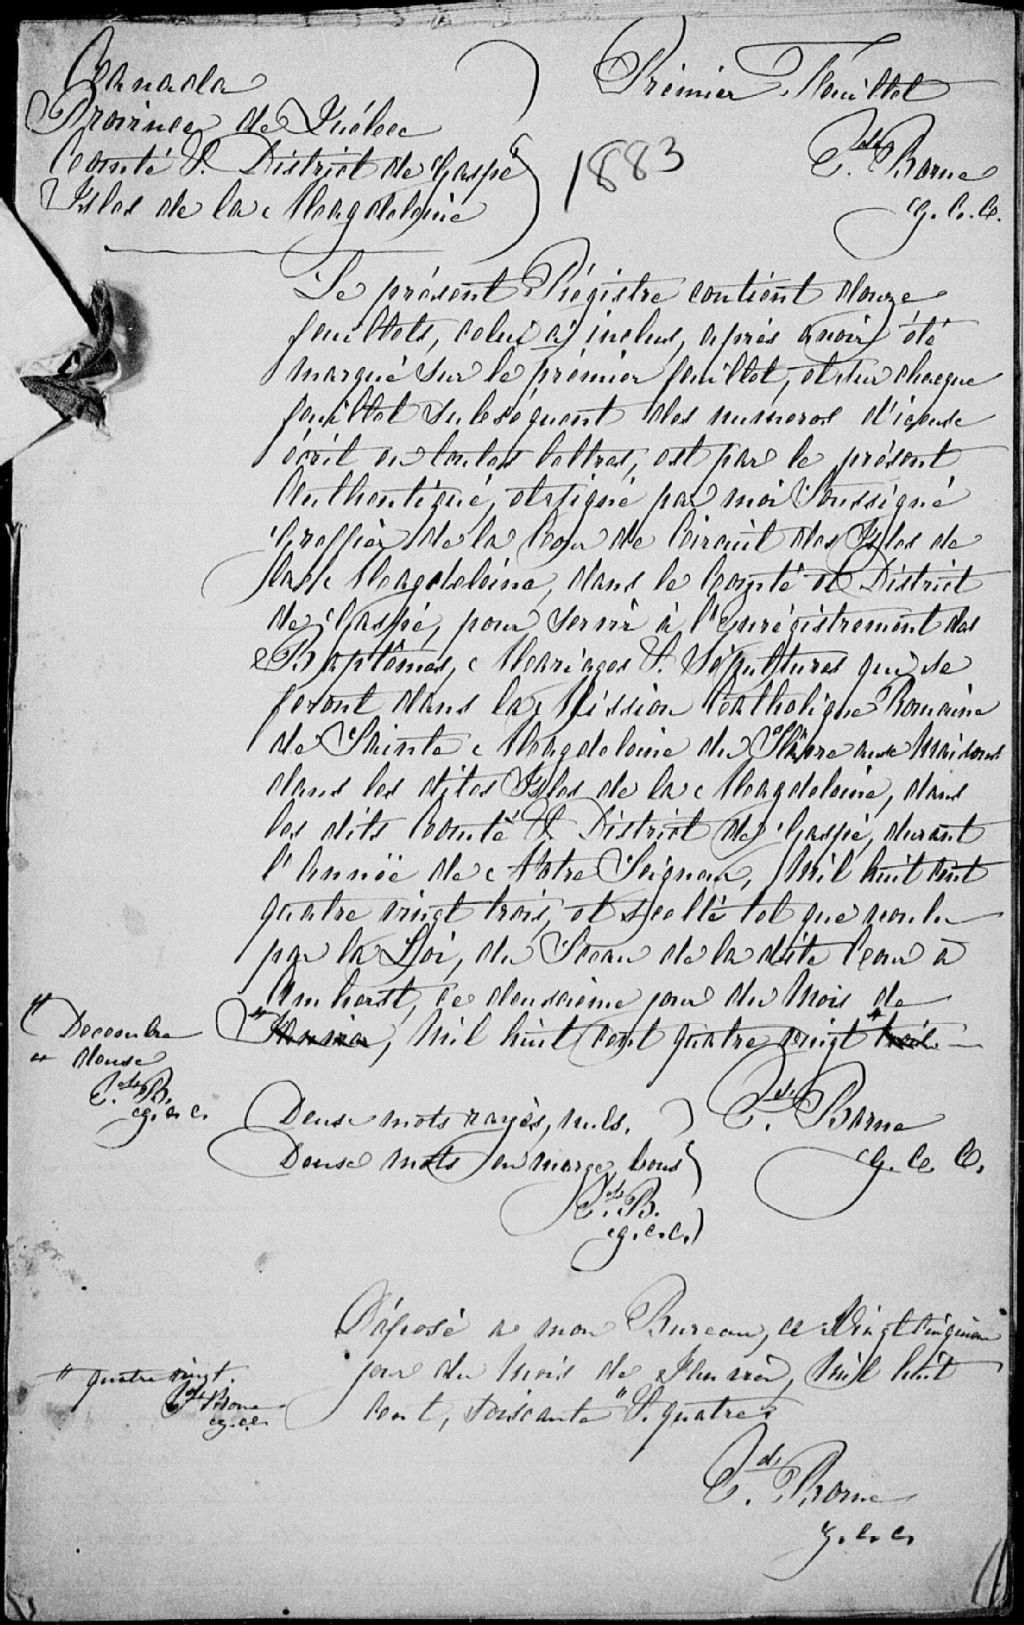 Canada
Province de Québec
Comté & District de Gaspé
Isles de la Magdeleine
1883
Prémier Feuillet
Eds. Borne
g. c. c.
Le présent Régistre contient douze
feuillets, celui ci inclus, après avoir été
marqué sur le prémier feuillet, et sur chaque
feuillet subséquent des numeros d'iceux
écrit en toutes lettres, est par le présent
Authentiqué, et signé par moi Soussigné
Greffier de la Cour de Circuit des Isles de
la Magdeleine, dans le Comté et District
de Gaspé, pour servir à l'enrégistrement des
Baptêmes, Mariages & Sépultures qui se
feront dans la Mission Catholique Romaine
de Sainte Magdeleine du Hâvre aux Maisons
dans les dites Isles de la Magdeleine, dans
les dits Comté & District de Gaspé, durant
l'Année de Notre Seigneur, Mil huit cent
quatre vingt trois, et scellé tel que voulu
par la Loi, du Sceau de la dite Cour à
Amherst, ce deuxième jour du Mois de
" Janvier, Mil huit cent quatre vingt " trois
" Decembre
" douse
Eds. B.
g. c. c.
Deux mots rayés, nuls.
Deux mots en marge, bons
Eds. B.
g. c. c.
Eds. Borne
g. c. c.
Déposé a mon Bureau, ce Vingt cinquième
jour du Mois de Janvier, Mil huit
Cent, soixante " & quatre
" quatre vingt.
Eds. Borne
g. c. c.
Eds. Borne
g. c. c.